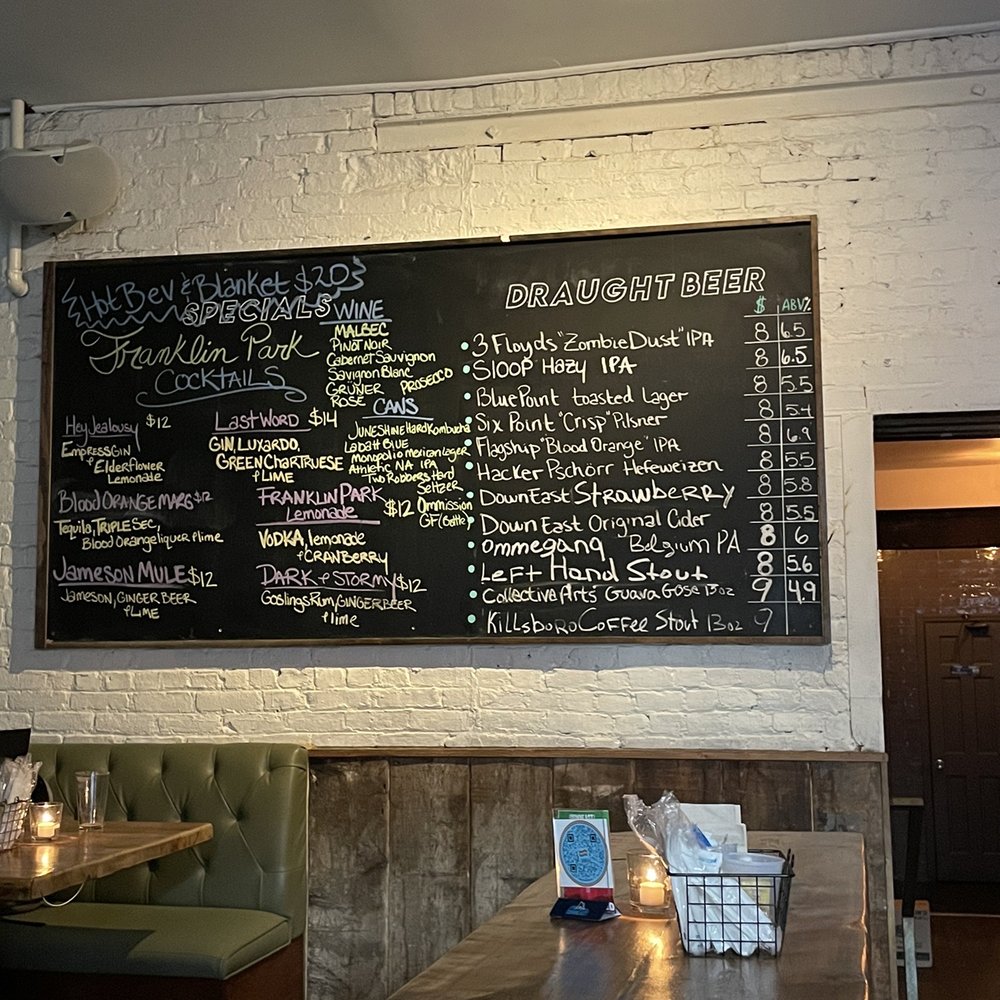 Hot Bev & Blanket $20
SPECIALS
Franklin Park
COCKTAILS
Hey Jealousy $12
EMPRESS GIN
& Elderflower
Lemonade
Blood ORANGE MARGS $12
Tequila, TRIPLE SEC,
Blood Orange liquer & lime
JAMESON MULE $12
Jameson, GINGER BEER
& LIME
LAST WORD $14
GIN, LUXARDO,
GREEN CHARTRUESE
& LIME
FRANKLIN PARK
Lemonade $12
VODKA, lemonade
& CRANBERRY
DARK & STORMY $12
Goslings Rum, GINGER BEER
& lime
WINE
MALBEC
PINOT NOIR
Cabernet Sauvignon
Savignon Blanc
GRÜNER PROSECCO
ROSE
CANS
JUNESHINE Hard Kombucha
Labatt BLUE
Monopolio Mexican Lager
Athletic NA IPA
Two Robbers Hard
Seltzer
Ommission
GF (Bottle)
DRAUGHT BEER
$ ABV%
3 Floyds "Zombie Dust" IPA 8 6.5
SlOOP Hazy IPA 8 6.5
Blue Point toasted Lager 8 5.5
Six Point "Crisp" Pilsner 8 5.4
Flagship "Blood Orange" IPA 8 6.9
Hacker Pschörr Hefeweizen 8 5.5
Down East Strawberry 8 5.8
Down East Original Cider 8 5.5
Ommegang Belgium PA 8 6
Left Hand Stout 8 5.6
Collective Arts Guava Gose 13oz 9 4.9
Killsboro Coffee Stout 13oz 9